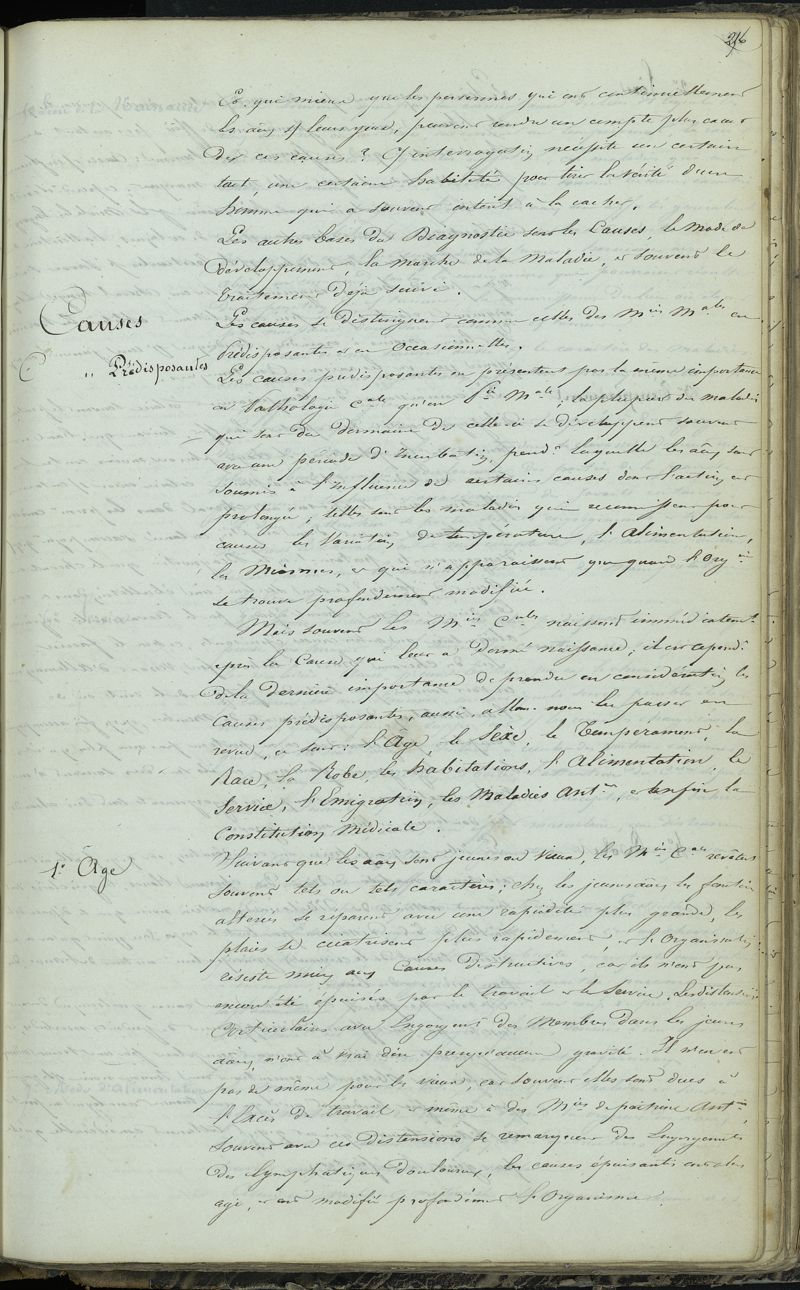 216
Et qui mieux que les personnes qui ont continuellement
les aaux s/ leurs yeux, peuvent rendre un compte plus exact
des ces causes ? Cet interrogatoire nécessite un certain
tact, une certaine habileté pour tirer la vérité d'un
homme qui a souvent intérêt à la cacher.
Les autres bases du Diagnostic sont les Causes, le mode de
développement, la marche de la Maladie, et souvent le
traitement déjà suivi.
Causes
Les causes se distinguent comme celles des Mies Males en
Prédisposantes et en Occasionnelles.
" Prédisposantes
Les causes prédisposantes ne présentent pas la même importance
en Pathologie Cale qu'en Pie Male ; la plupart des maladies
qui sont du domaine de celle-ci se développent souvent
avec une période d'Incubation, pendt laquelle les aaux sont
soumis à l'Influence de certaines causes dont l'action est
prolongée ; telles sont les maladies qui reconnaissent pour
causes les Variations de température, l'Alimentation,
les Miasmes, et qui n'apparaissent que quand l'Orgon
se trouve profondément modifié.
Mais souvent les Mies Cales naissent immédiatemt
après la Cause qui leur a donné naissance ; il est cependt
de la dernière importance de prendre en considération les
causes prédisposantes, aussi, allons-nous les passer en
revue, ce sont : l'Age, le Sèxe, le Tempérament, la
Race, la Robe, les habitations, l'Alimentation, le
Service, l'Emigration, les Maladies Antres, et enfin la
Constitution Médicale.
1º Age
Suivant que les aaux sont jeunes ou vieux, les Mies Cales revêtent
souvent tels ou tels caractères ; chez les jeunes aaux les fonctions
altérées se réparent avec une rapidité plus grande, les
plaies se cicatrisent plus rapidement, et l'Organisation
résiste mieux aux Causes destructives, car ils n'ont pas
encore été épuisés par le travail et le Service. Les distensions
Articulaires avec Engorgemts des Membres dans les jeunes
aaux, n'ont à vrai dire presqu'aucune gravité. Il n'en est
pas de même pour les vieux, car souvent elles sont dues à
l'Excès de travail et même à des Mies de poitrine Antres
souvent avec ces distensions se remarquent des Engorgements
des Lymphatiques douloureux, les causes épuisantes ont
agi, et ont modifié profondément l'Organisme.